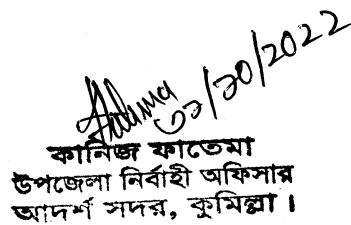 ৩১/১০/২০২২
কানিজ ফাতেমা
উপজেলা নির্বাহী অফিসার
আদর্শ সদর, কুমিল্লা।